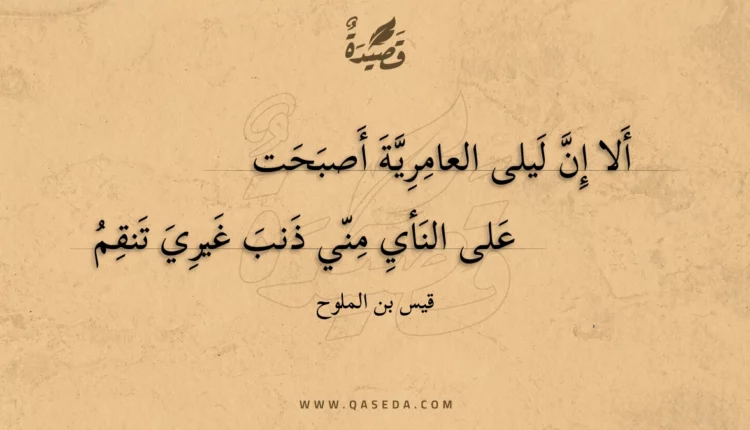 قَصِيدَةٌ
أَلا إِنَّ لَيلى العامِرِيَّةَ أَصبَحَت
عَلى النَأيِ مِنّي ذَنبَ غَيرِيَ تَنقِمُ
قيس بن الملوح
WWW.QASEDA.COM